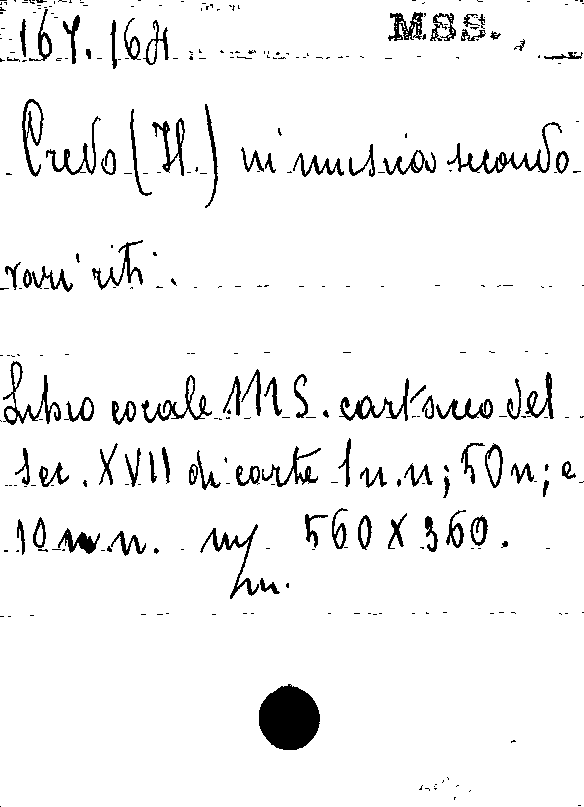 MSS.
Credo (Il.) in musica secondo
vari riti.
Libro corale MS. cartaceo del
sec. XVII di carte 1 n.n; 50 n; e
10 n.n. 560 X 360.